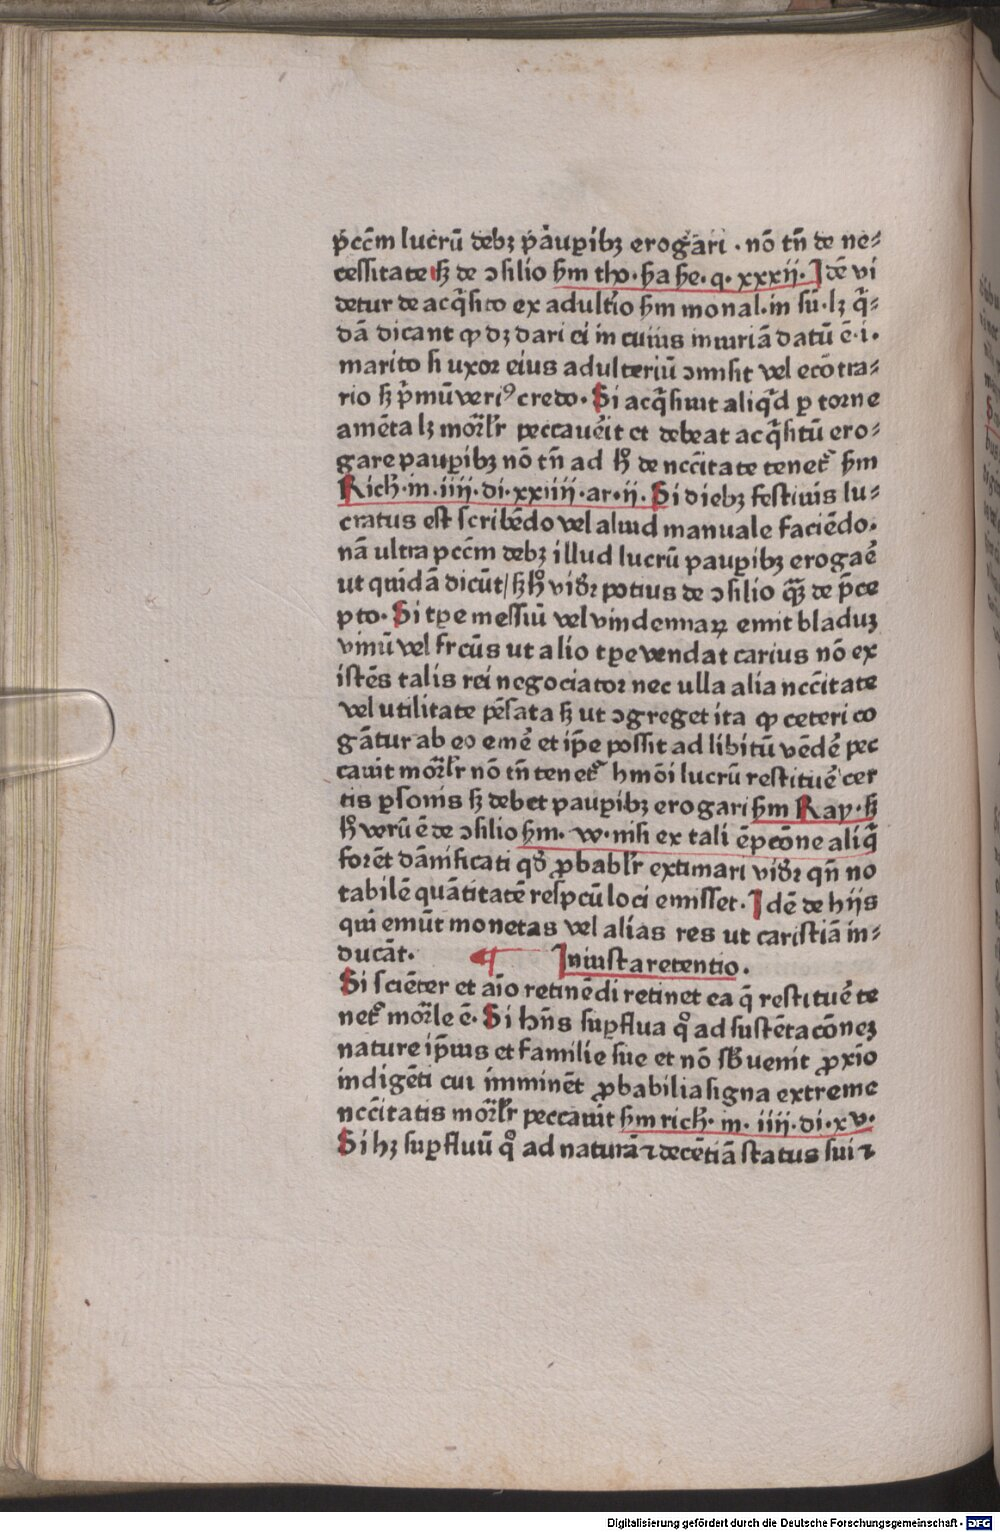 p̄cc̄m lucrū debꝫ p̄auꝑibꝫ erogari · nō tn̄ de ne⸗
cessitate sꝫ de ↄsilio ẜm tho · ẜa ẜe · q · xxxij · Idē vi
detur de acq̄sito ex adult̄io ẜm monal · in sū · lꝫ q̄⸗
dā dicant ꝙ dꝫ dari ei in cuius iniuriā datū ē · i ·
marito si uxor eius adulteriū ↄmisit vel ecōtra⸗
rio sꝫ p̄mū veriꝰ credo · Si acq̄siuit aliq̄d ꝑ torne
amēta lꝫ mor̄lr̄ peccau̅it et debeat acq̄sitū ero⸗
gare pauꝑibꝫ nō tn̄ ad hͦ de nccītate tenet᷑ ẜm
Rich · in · iiij · di · xxiiij · ar · ij · Si diebꝫ festiuis lu⸗
cratus est scribēdo vel aliud manuale faciēdo ·
nā ultra pcc̄m debꝫ illud lucrū pauꝑibꝫ erogae̅
ut quidā dicūt / sꝫ hͦ vid̄r potius de ↄsilio qꝫ̄ de p̄ce
pto · Si tꝑe messiū vel vindemiaꝝ emit bladuꝫ
vinū vel fr̄cūs ut alio tꝑe vendat carius nō ex
istēs talis rei negociator nec ulla alia nccītate
vel utilitate pēsata sꝫ ut ↄgreget ita ꝙ ceteri co
gātur ab eo eme̅ et ip̄e possit ad libitū vēde̅ pec
cauit mor̄lr̄ nō tn̄ tenet᷑ hmōi lucrū restitue̅ cer
tis ꝑsonis sꝫ debet pauꝑibꝫ erogari ẜm Ray · sꝫ
hͦ verū ē de ↄsilio ẜm · w · nisi ex tali ēpcōne aliq̄
forēt dānificati qd̄ ꝓbablr̄ extimari vid̄r qn̄ no
tabilē quātitatē resp̄cū loci emisset · Idē de hijs
qui emūt monetas vel alias res ut caristiā in⸗
ducāt · ¶ Iniusta retentio ·
Si sciēter et aīo retinēdi retinet ea q̄ restitue̅ te
net᷑ mor̄le ē · Si hn̄s suꝑflua qͦ ad sustētacōneꝫ
nature ip̄ius et familie sue et nō sb̄uenit ꝓxīo
indigēti cui imminēt ꝓbabilia signa extreme
nccītatis mor̄lr̄ peccauit ẜm rich · in · iiij · di · xv ·
Si hꝫ suꝑfluū qͦ ad naturā ⁊ decētiā status sui ⁊
Digitalisierung gefördert durch die Deutsche Forschungsgemeinschaft - DFG